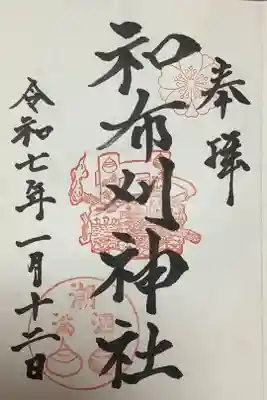 奉拝
和布刈神社
令和七年一月十二日